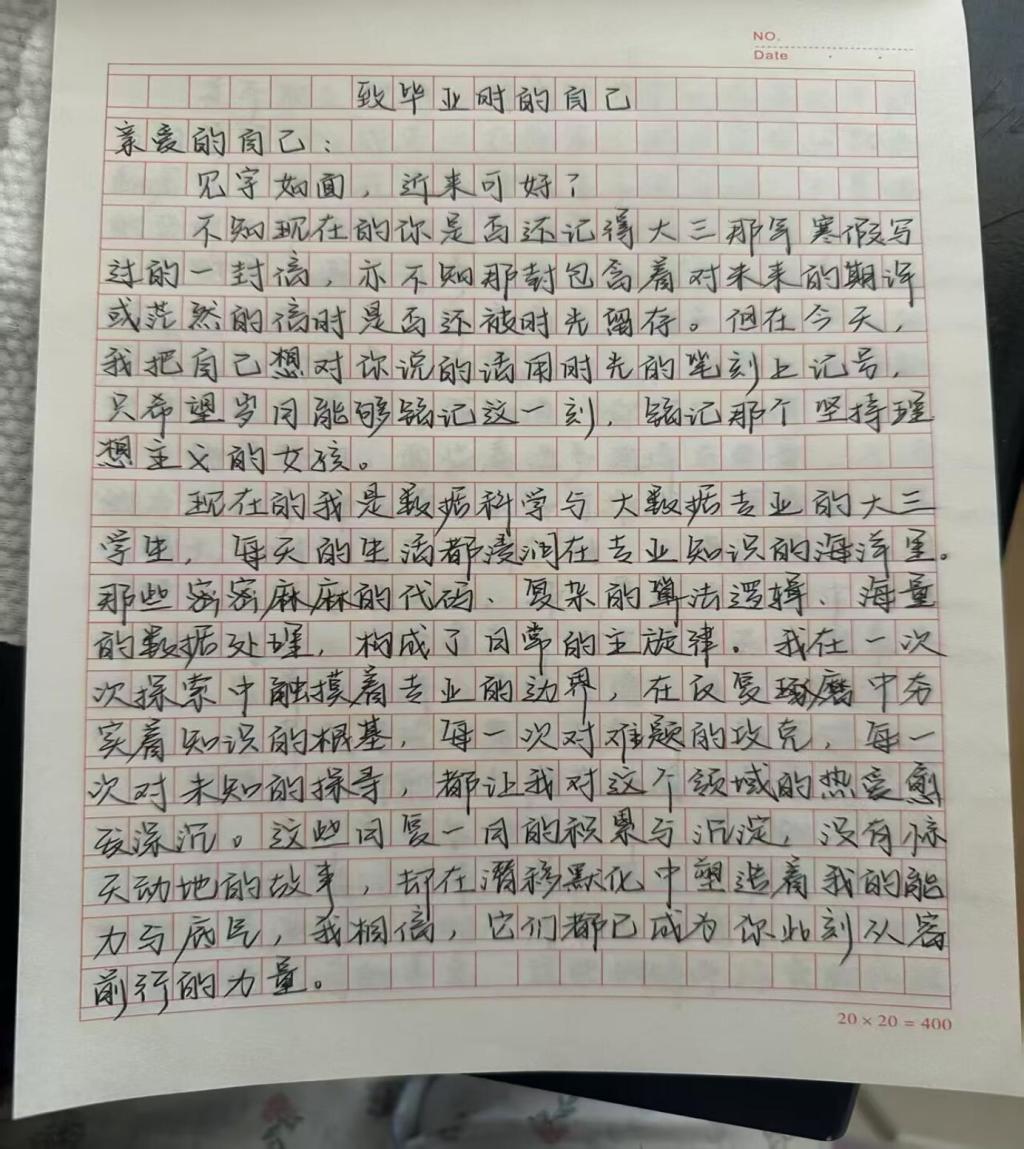 NO.
Date
致毕业时的自己
亲爱的自己：
见字如面，近来可好？
不知现在的你是否还记得大三那年寒假写
过的一封信，亦不知那封包含着对未来的期许
或茫然的信时是否还被时光留存。但在今天，
我把自己想对你说的话用时光的笔刻上记号，
只希望岁月能够铭记这一刻，铭记那个坚持理
想主义的女孩。
现在的我是数据科学与大数据专业的大三
学生，每天的生活都浸润在专业知识的海洋里。
那些密密麻麻的代码、复杂的算法逻辑、海量
的数据处理，构成了日常的主旋律。我在一次
次探索中触摸着专业的边界，在反复琢磨中夯
实着知识的根基，每一次对难题的攻克，每一
次对未知的探寻，都让我对这个领域的热爱愈
发深沉。这些日复一日的积累与沉淀，没有惊
天动地的故事，却在潜移默化中塑造着我的能
力与底气，我相信，它们都已成为你此刻从容
前行的力量。
20 × 20 = 400